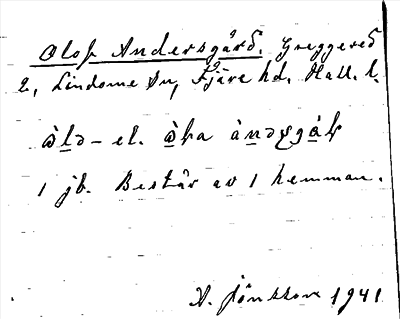 Olof Andersgård. Greggered
2, Lindome sn, Fjäre hd. Hall. l.
el.
1 jb. Består av 1 hemman.
A. Jönsson 1941